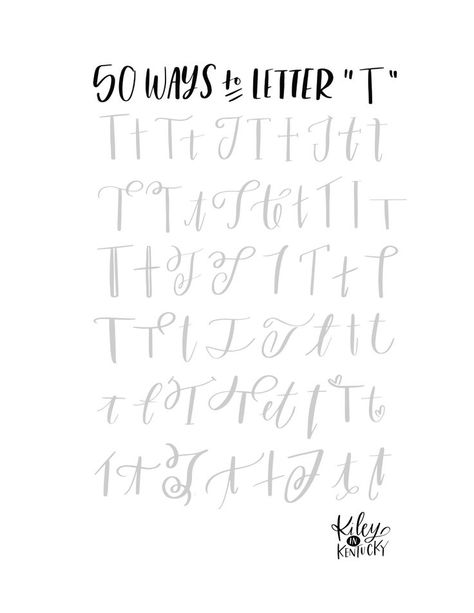 50 WAYS to LETTER "T"
T t T t T T t T t t
T T t T t t T T T
T t T T t T t T
T T t T T t t t
t t T T e t t T t
T t T t t T t t
Kiley
IN
KENTUCKY